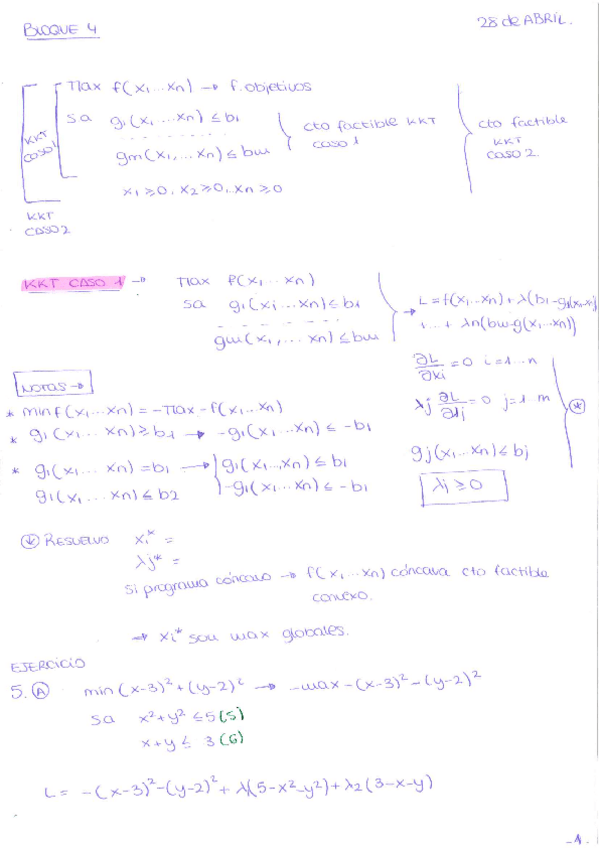 BLOQUE 4
28 de ABRIL.
Max f(x1...xn) → f. objetivos
sa g1(x1...xn) ≤ b1
gm(x1,...xn) ≤ bm
x1 ≥ 0, x2 ≥ 0, xn ≥ 0
KKT CASO 1
KKT CASO 2
cto factible KKT CASO 1
cto factible KKT CASO 2.
KKT CASO 1 → Max f(x1...xn)
sa g1(xi...xn) ≤ b1
gm(x1,...xn) ≤ bm
→ L = f(x1...xn) + λ(b1 - g1(x1..xn)
+... + λn(bm-g(x1...xn))
∂L/∂xi = 0 i=1...n
λj ∂L/∂λj = 0 j=1...m
gj(x1...xn) ≤ bj
λj ≥ 0
*
NOTAS →
* min f(x1...xn) = -Max -f(x1...xn)
* g1(x1...xn) ≥ b1 → -g1(x1...xn) ≤ -b1
* g1(x1...xn) = b1 → g1(x1...xn) ≤ b1
g1(x1...xn) ≤ b2 -g1(x1...xn) ≤ -b1
* RESUELVO xi* =
λj* =
si programa cóncavo → f(x1...xn) cóncava cto factible
convexo.
→ xi* son max globales.
EJERCICIO
5. A min (x-3)² + (y-2)² → -max -(x-3)² - (y-2)²
sa x² + y² ≤ 5 (5)
x + y ≤ 3 (6)
L = -(x-3)² - (y-2)² + λ1(5-x²-y²) + λ2(3-x-y)
-1-